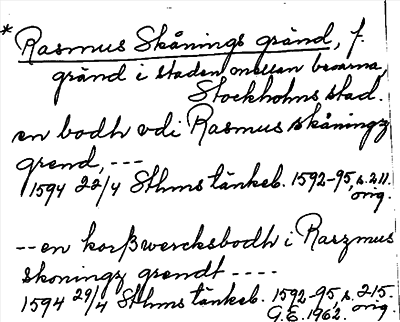 * Rasmus Skånings gränd, f.
gränd i staden mellan broarna,
Stockholms stad.
en bodh vdi Rasmus skåningz
grend, ---
1594 22/4 Sthms tänkeb. 1592-95, s. 211.
orig.
-- en korßwercksbodh i Raszmus
skoningz grendt ----
1594 29/4 Sthms tänkeb. 1592-95, s. 215.
orig.
G.E. 1962.